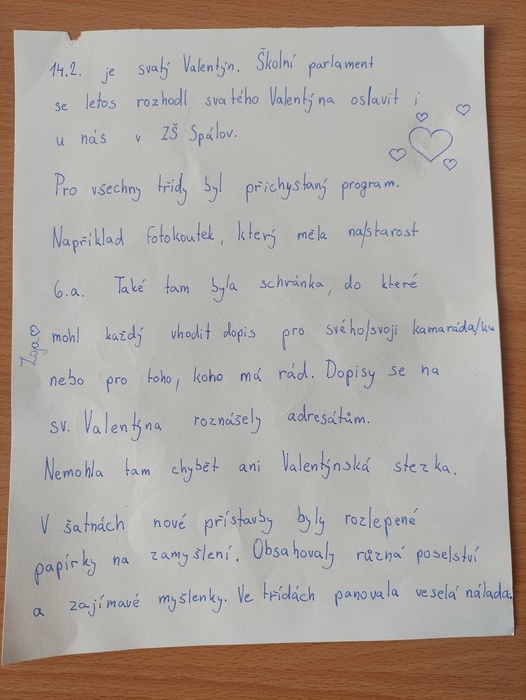 14.2. je svatý Valentýn. Školní parlament
se letos rozhodl svatého Valentýna oslavit i
u nás v ZŠ Spálov.
Pro všechny třídy byl přichystaný program.
Například fotokoutek, který měla na/starost
6.a. Také tam byla schránka, do které
mohl každý vhodit dopis pro svého/svoji kamaráda/ku
nebo pro toho, koho má rád. Dopisy se na
sv. Valentýna roznášely adresátům.
Nemohla tam chybět ani Valentýnská stezka.
V šatnách nové přístavby byly rozlepené
papírky na zamyšlení. Obsahovaly různá poselství
a zajímavé myšlenky. Ve třídách panovala veselá nálada.